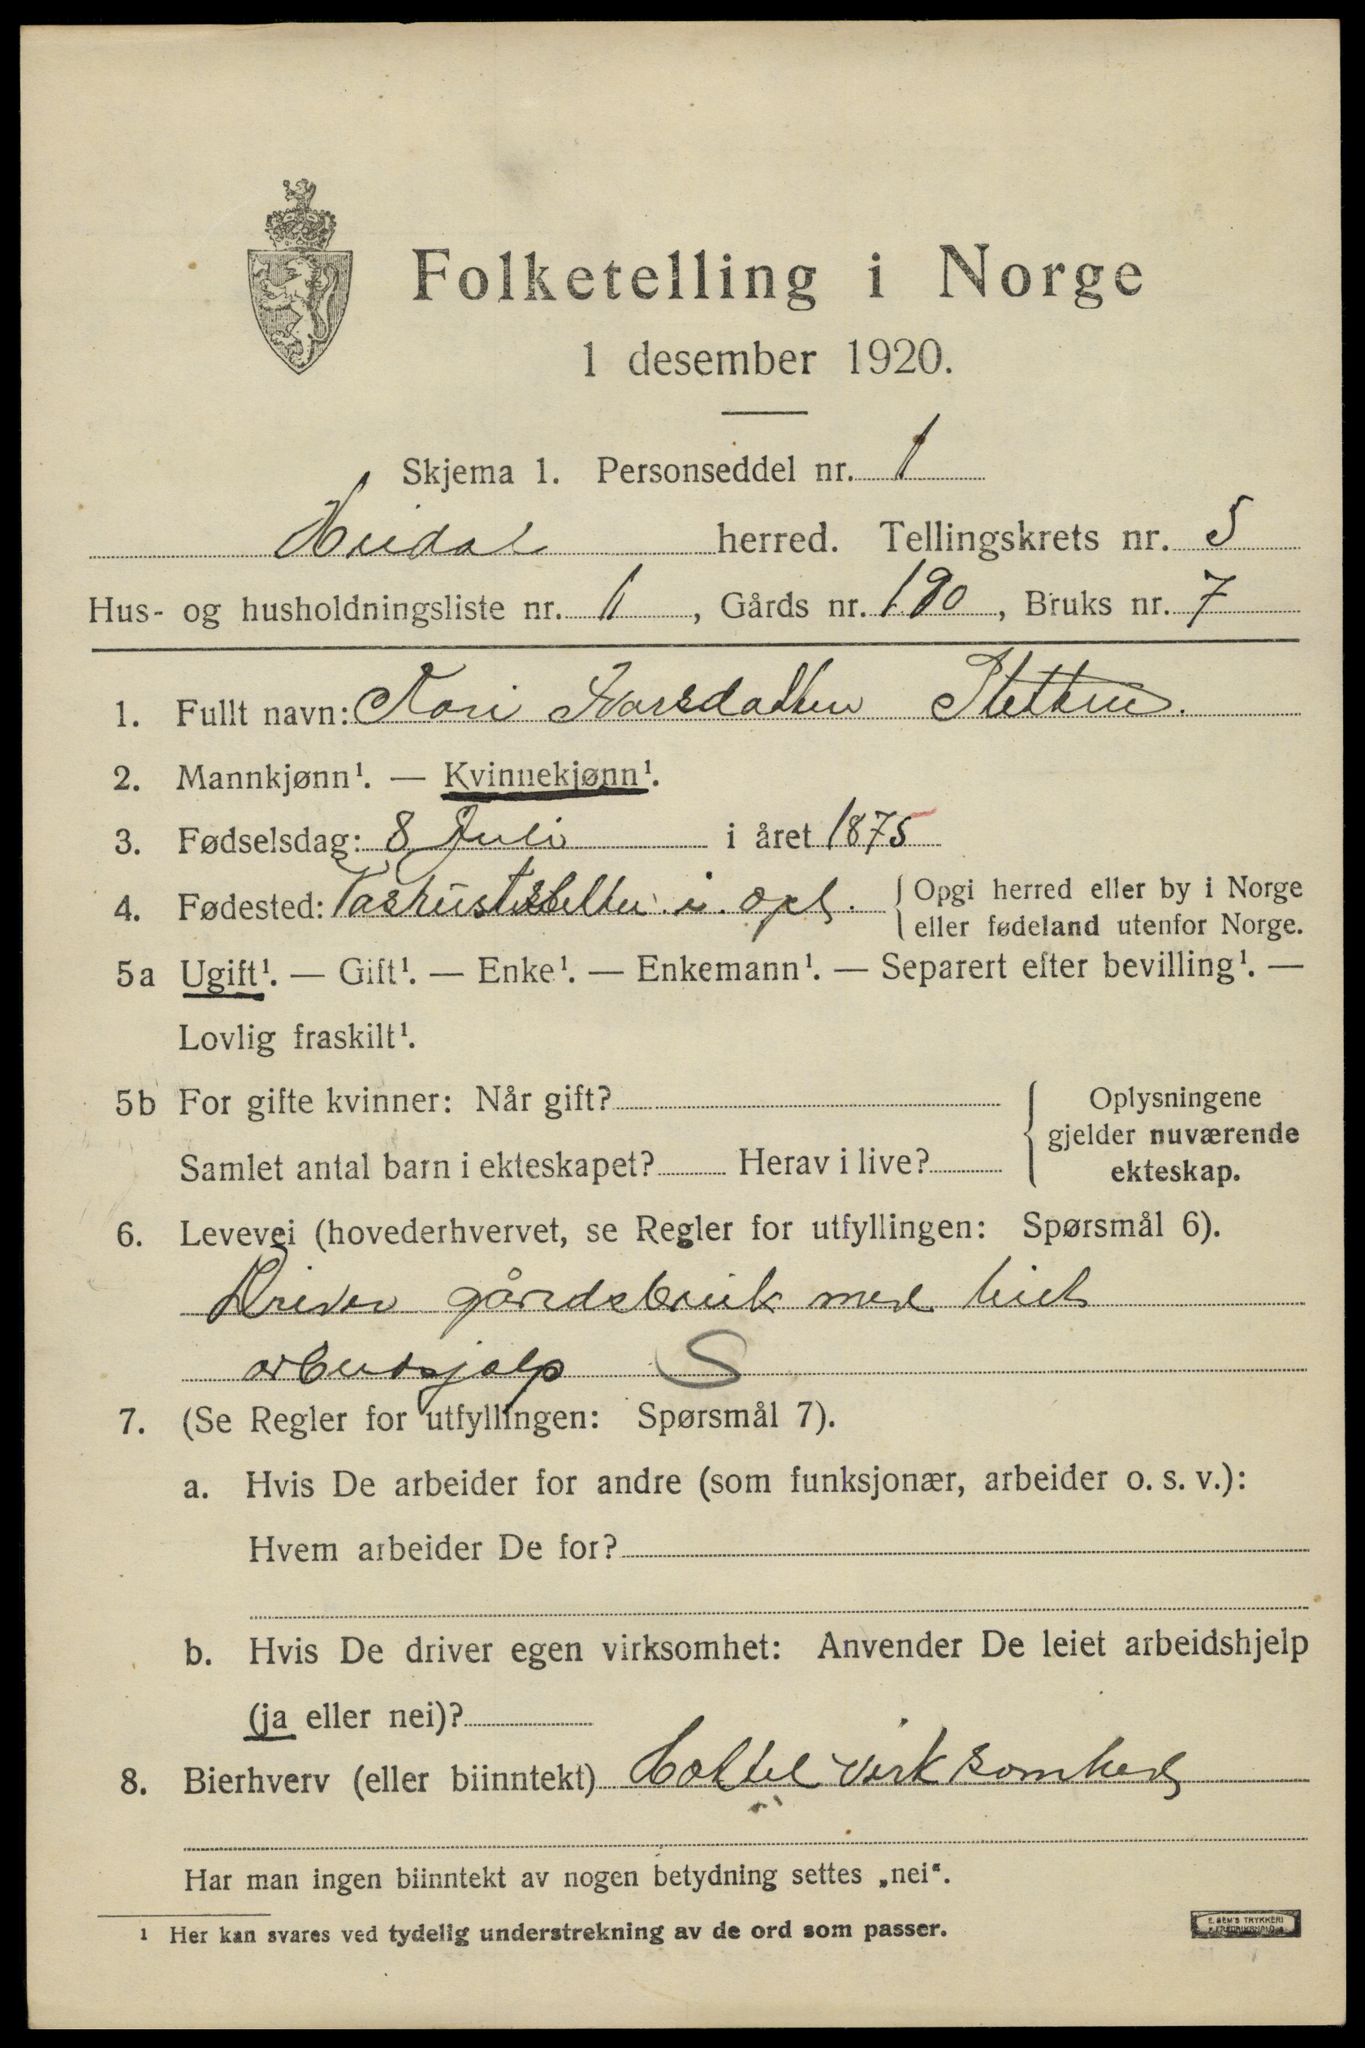 Folketelling i Norge
1 desember 1920.
Skjema 1. Personseddel nr. 1
Heidal herred. Tellingskrets nr. 5
Hus- og husholdningsliste nr. 11, Gårds nr. 190, Bruks nr. 7
1. Fullt navn: Kari Ivarsdatter Sletten.
2. Mannkjønn¹. — Kvinnekjønn¹.
3. Fødselsdag: 8 Juli i året 1875
4. Fødested: i opl. Opgi herred eller by i Norge
eller fødeland utenfor Norge.
5a Ugift¹. — Gift¹. — Enke¹. — Enkemann¹. — Separert efter bevilling¹. —
Lovlig fraskilt¹.
5b For gifte kvinner: Når gift? Oplysningene
gjelder nuværende
Samlet antal barn i ekteskapet? Herav i live? ekteskap.
6. Levevei (hovederhvervet, se Regler for utfyllingen: Spørsmål 6).
Driver gårdsbruk med leiet
arbeidshjælp S
7. (Se Regler for utfyllingen: Spørsmål 7).
a. Hvis De arbeider for andre (som funksjonær, arbeider o. s. v.):
Hvem arbeider De for?
b. Hvis De driver egen virksomhet: Anvender De leiet arbeidshjelp
(ja eller nei)?
8. Bierhverv (eller biinntekt) Hottel virksomhed
Har man ingen biinntekt av nogen betydning settes „nei“.
¹ Her kan svares ved tydelig understrekning av de ord som passer.
E. SEM'S TRYKKERI
FREDRIKSHALD